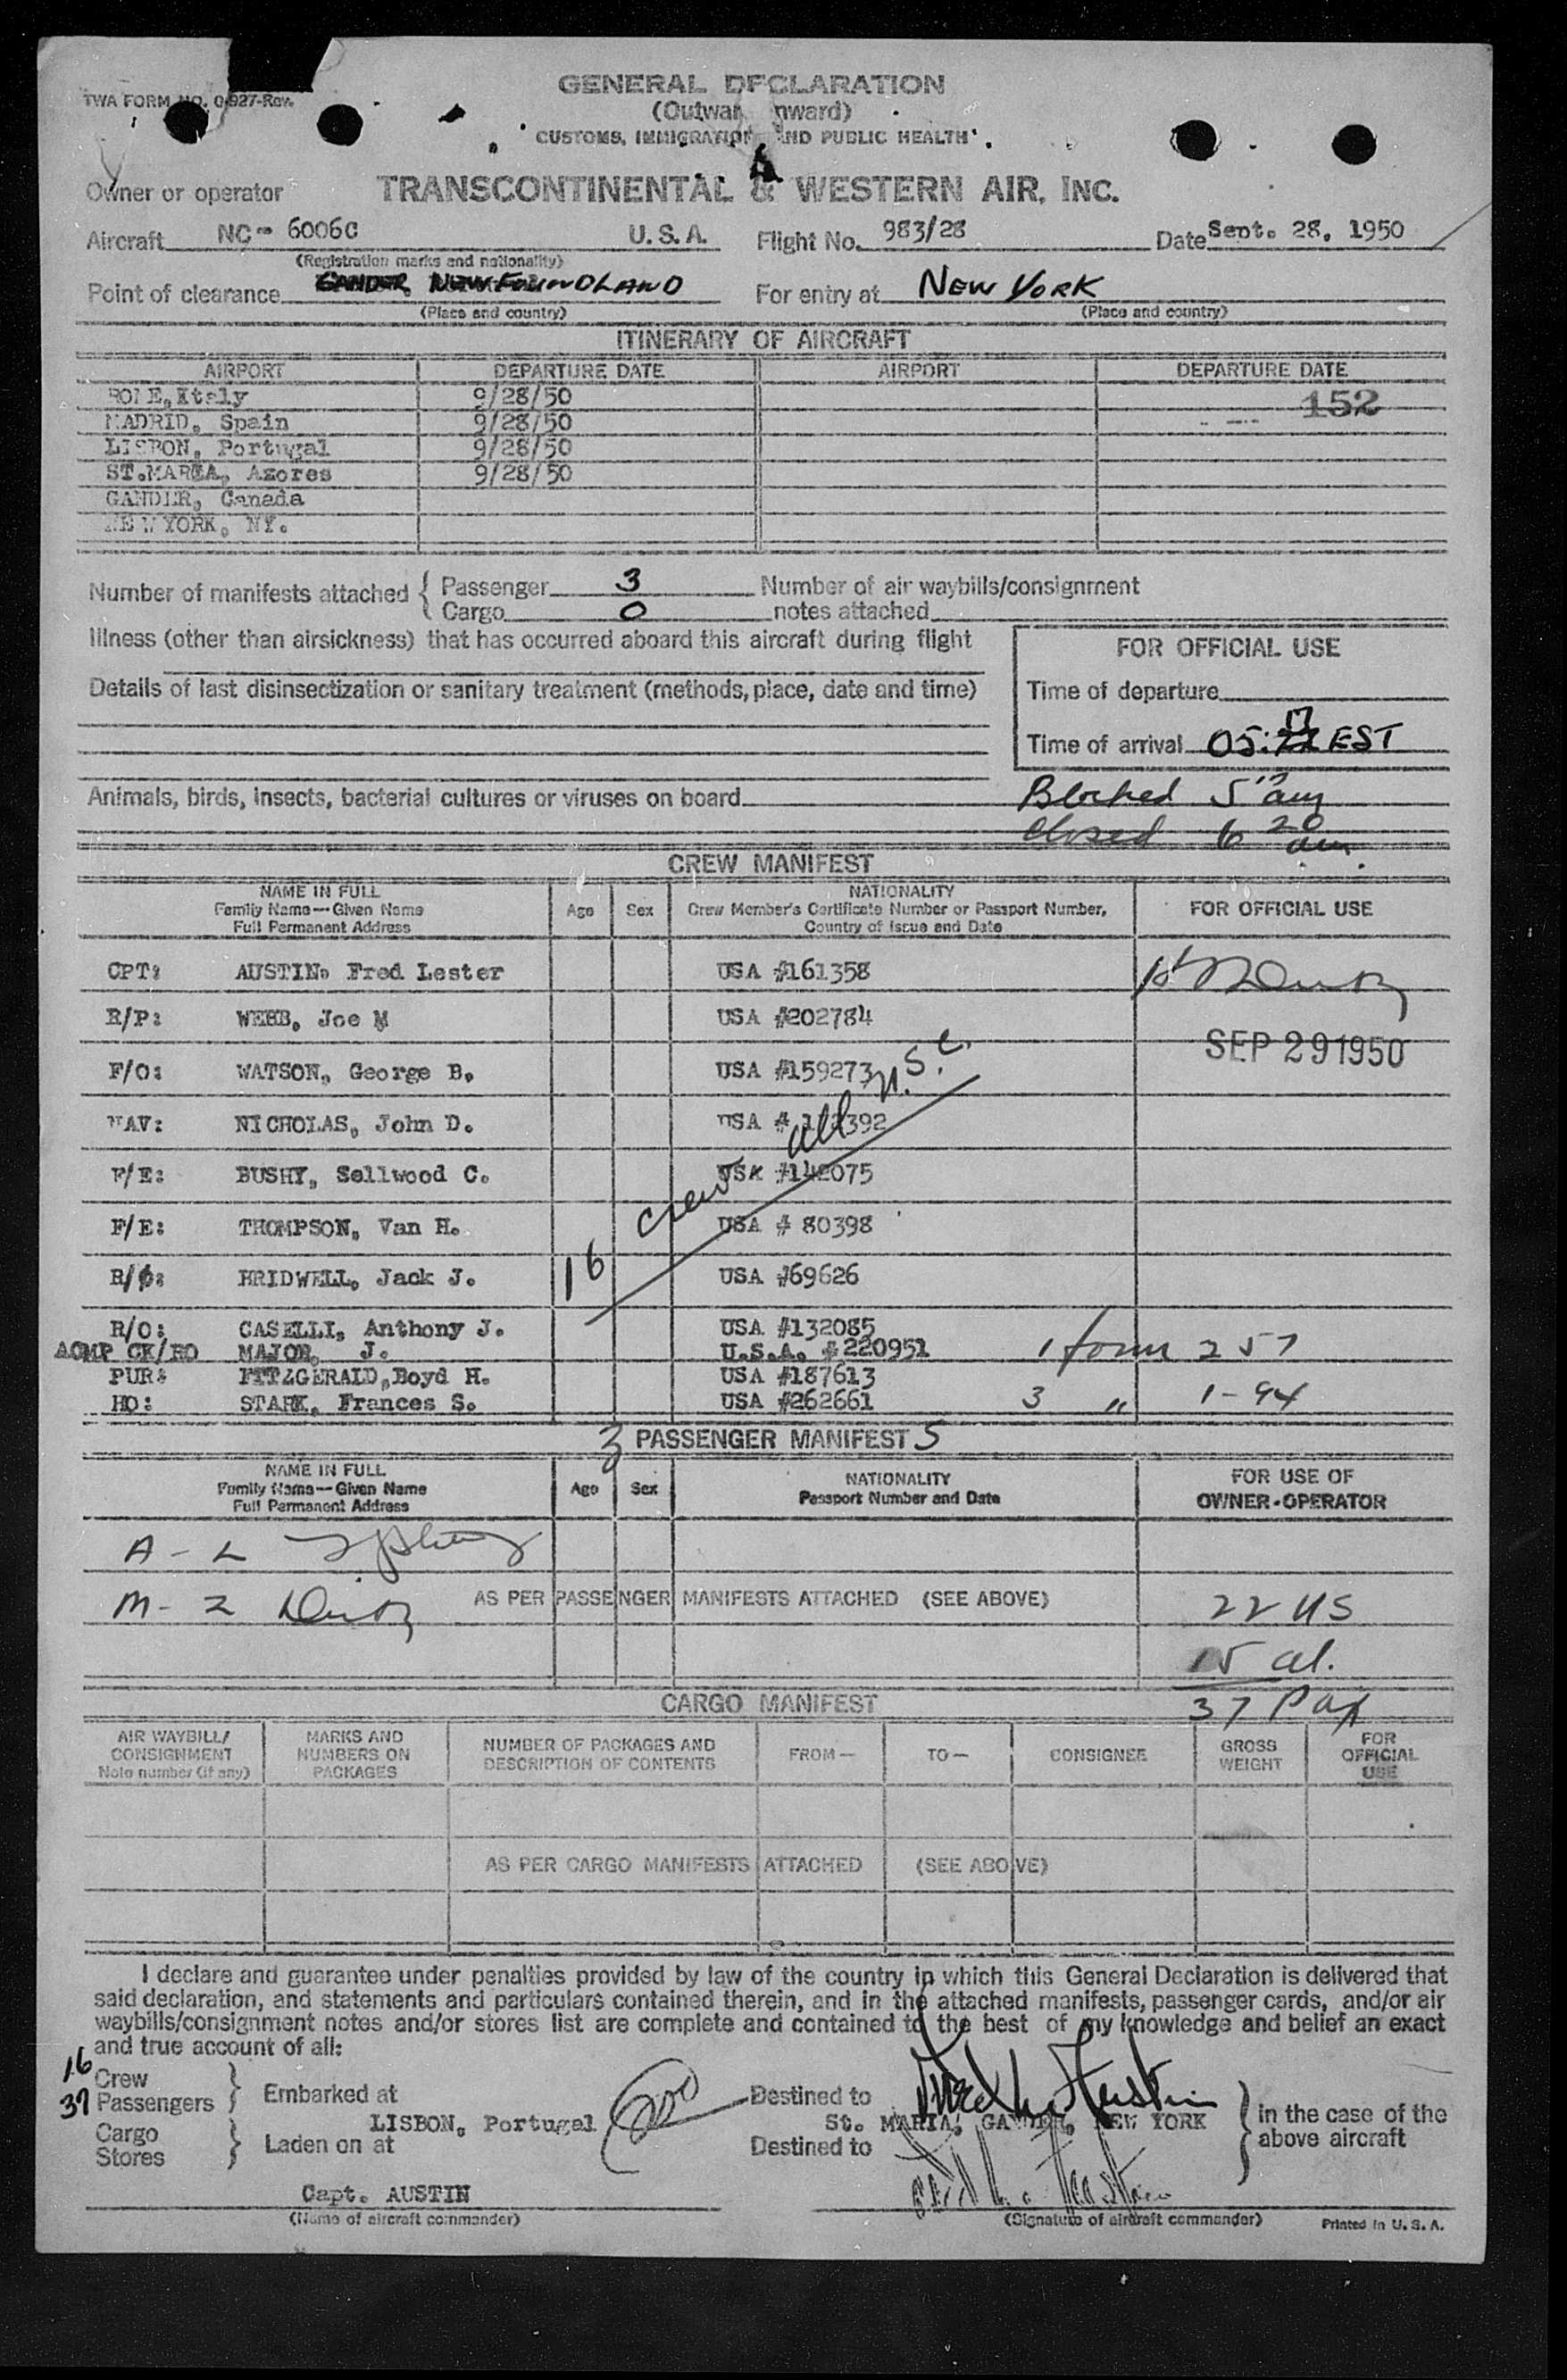 TWA FORM NO. 0-927-Rev.
GENERAL DECLARATION
(Outward Inward)
CUSTOMS, IMMIGRATION AND PUBLIC HEALTH
Owner or operator TRANSCONTINENTAL & WESTERN AIR, INC.
Aircraft NC- 6006C U.S.A. Flight No. 983/28 Date Sept. 28, 1950
(Registration marks and nationality)
Point of clearance GANDER NEWFOUNDLAND For entry at NEW YORK
(Place and country) (Place and country)
ITINERARY OF AIRCRAFT
AIRPORT DEPARTURE DATE AIRPORT DEPARTURE DATE
ROME, Italy 9/28/50 152
MADRID, Spain 9/28/50
LISBON, Portugal 9/28/50
ST.MARIA, Azores 9/28/50
GANDER, Canada
NEW YORK, NY.
Number of manifests attached { Passenger 3 Number of air waybills/consignment
Cargo 0 notes attached
Illness (other than airsickness) that has occurred aboard this aircraft during flight
FOR OFFICIAL USE
Details of last disinsectization or sanitary treatment (methods, place, date and time)
Time of departure
17
Time of arrival 05:22 EST
Animals, birds, insects, bacterial cultures or viruses on board
Blocked 5 am
closed 6 20 am
CREW MANIFEST
NAME IN FULL NATIONALITY
Family Name—Given Name Age Sex Crew Member's Certificate Number or Passport Number, FOR OFFICIAL USE
Full Permanent Address Country of Issue and Date
CPT: AUSTIN, Fred Lester USA #161358
R/P: WEBB, Joe M USA #202784
SEP 29 1950
F/O: WATSON, George B. USA #159273
NAV: NICHOLAS, John D. USA # 392
F/E: BUSHY, Sellwood C. USA #142075
F/E: THOMPSON, Van H. USA # 80398
R/O: BRIDWELL, Jack J. USA #69626
16 crew all U.S.C.
R/O: CASELLI, Anthony J. USA #132085
ACMP CK/RO MAJOR, J. U.S.A. #220951 1 form 257
PUR: FITZGERALD, Boyd H. USA #187613
HO: STARK, Frances S. USA #262661 3 " 1-94
3 PASSENGER MANIFEST S
NAME IN FULL NATIONALITY FOR USE OF
Family Name—Given Name Age Sex Passport Number and Date OWNER-OPERATOR
Full Permanent Address
A - L
M - Z AS PER PASSENGER MANIFESTS ATTACHED (SEE ABOVE) 22 US
15 al.
37 Pax
CARGO MANIFEST
AIR WAYBILL/ CONSIGNMENT Note number (if any) MARKS AND NUMBERS ON PACKAGES NUMBER OF PACKAGES AND DESCRIPTION OF CONTENTS FROM— TO— CONSIGNEE GROSS WEIGHT FOR OFFICIAL USE
AS PER CARGO MANIFESTS ATTACHED (SEE ABOVE)
I declare and guarantee under penalties provided by law of the country in which this General Declaration is delivered that
said declaration, and statements and particulars contained therein, and in the attached manifests, passenger cards, and/or air
waybills/consignment notes and/or stores list are complete and contained to the best of my knowledge and belief an exact
and true account of all:
16 Crew
37 Passengers } Embarked at Destined to Fred L. Austin
LISBON, Portugal St. MARIA, GANDER, NEW YORK
Cargo
Stores } Laden on at Destined to
} in the case of the
above aircraft
Capt. AUSTIN Fred L. Austin
(Name of aircraft commander) (Signature of aircraft commander) Printed in U. S. A.